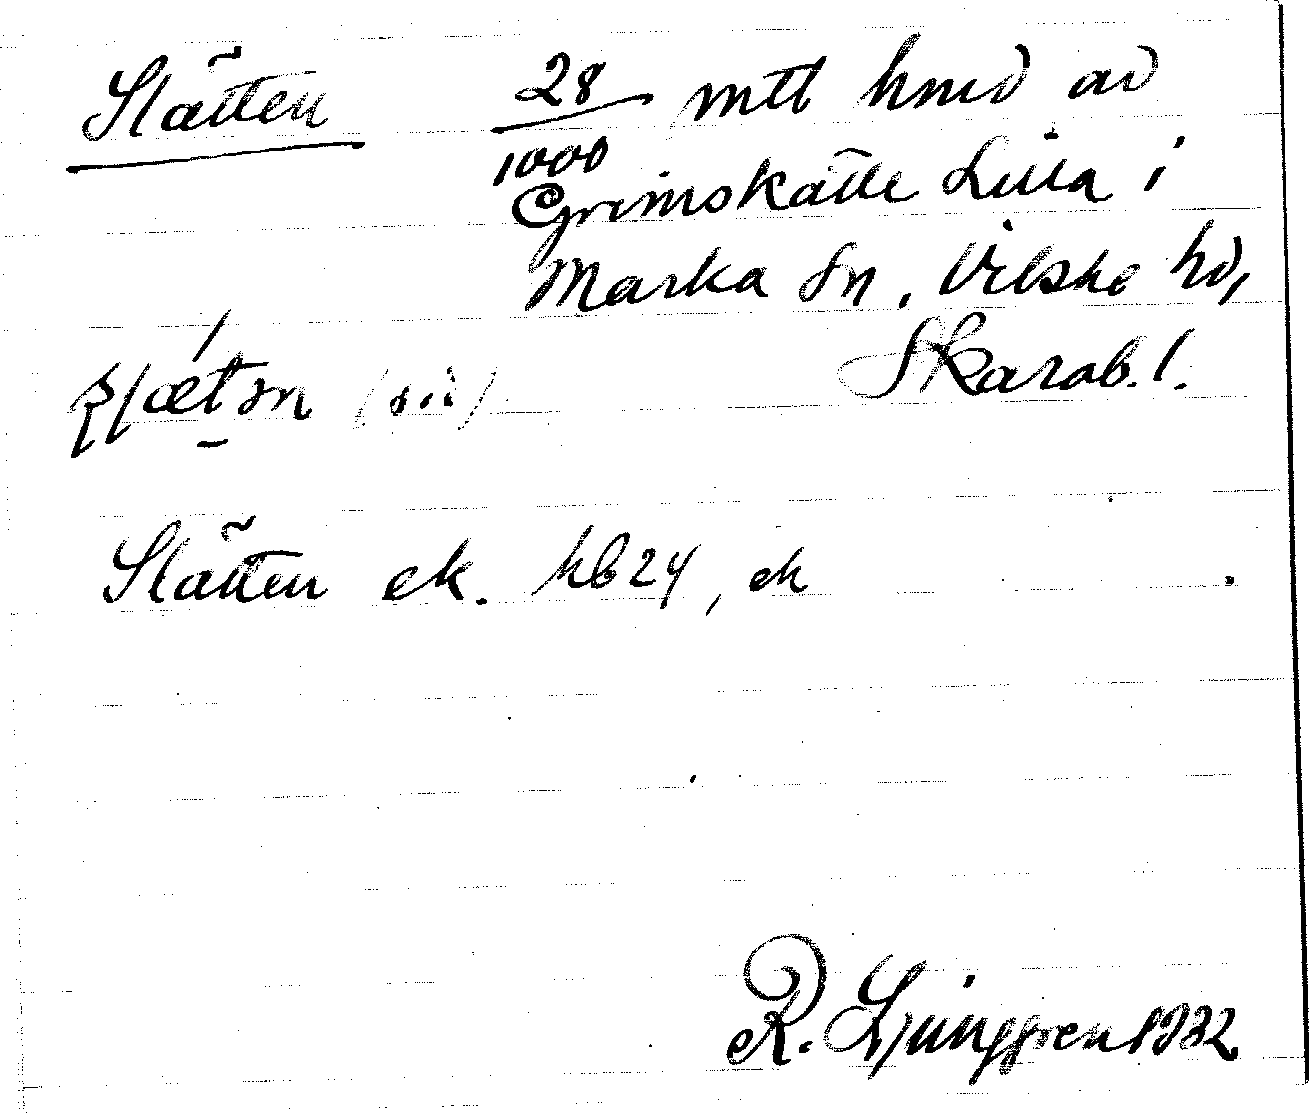 Slätten 28/1000 mtl hmd av
Grimskälle Lilla i
Marka sn, Vilske hd,
Skarab. l.
(sic)
Slätten ek. kb 24, ek
R. Ljunggren 1932